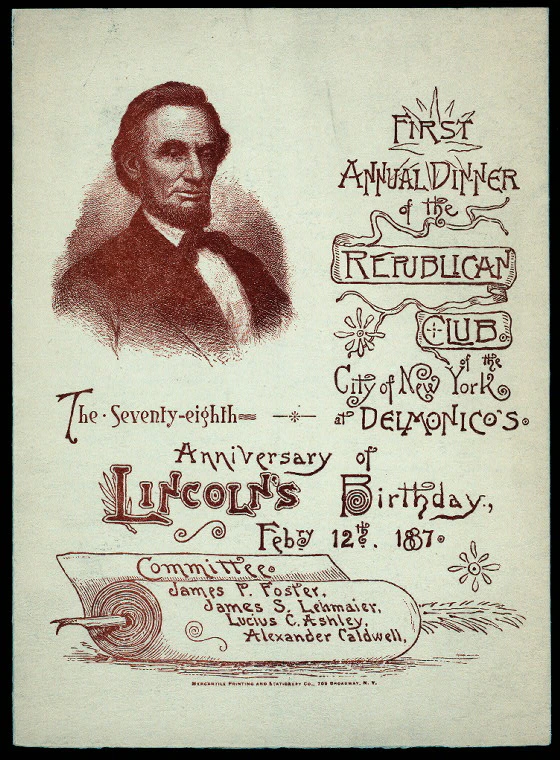 FIRST
ANNUAL DINNER
of the
REPUBLICAN
CLUB.
of the
City of New York
at DELMONICO'S.
The Seventy-eighth
Anniversary of
LINCOLN'S Birthday,
Feb'ry 12th. 1887.
Committee.
James P. Foster,
James S. Lehmaier,
Lucius C. Ashley,
Alexander Caldwell,
MERCANTILE PRINTING AND STATIONERY CO., BROADWAY, N. Y.